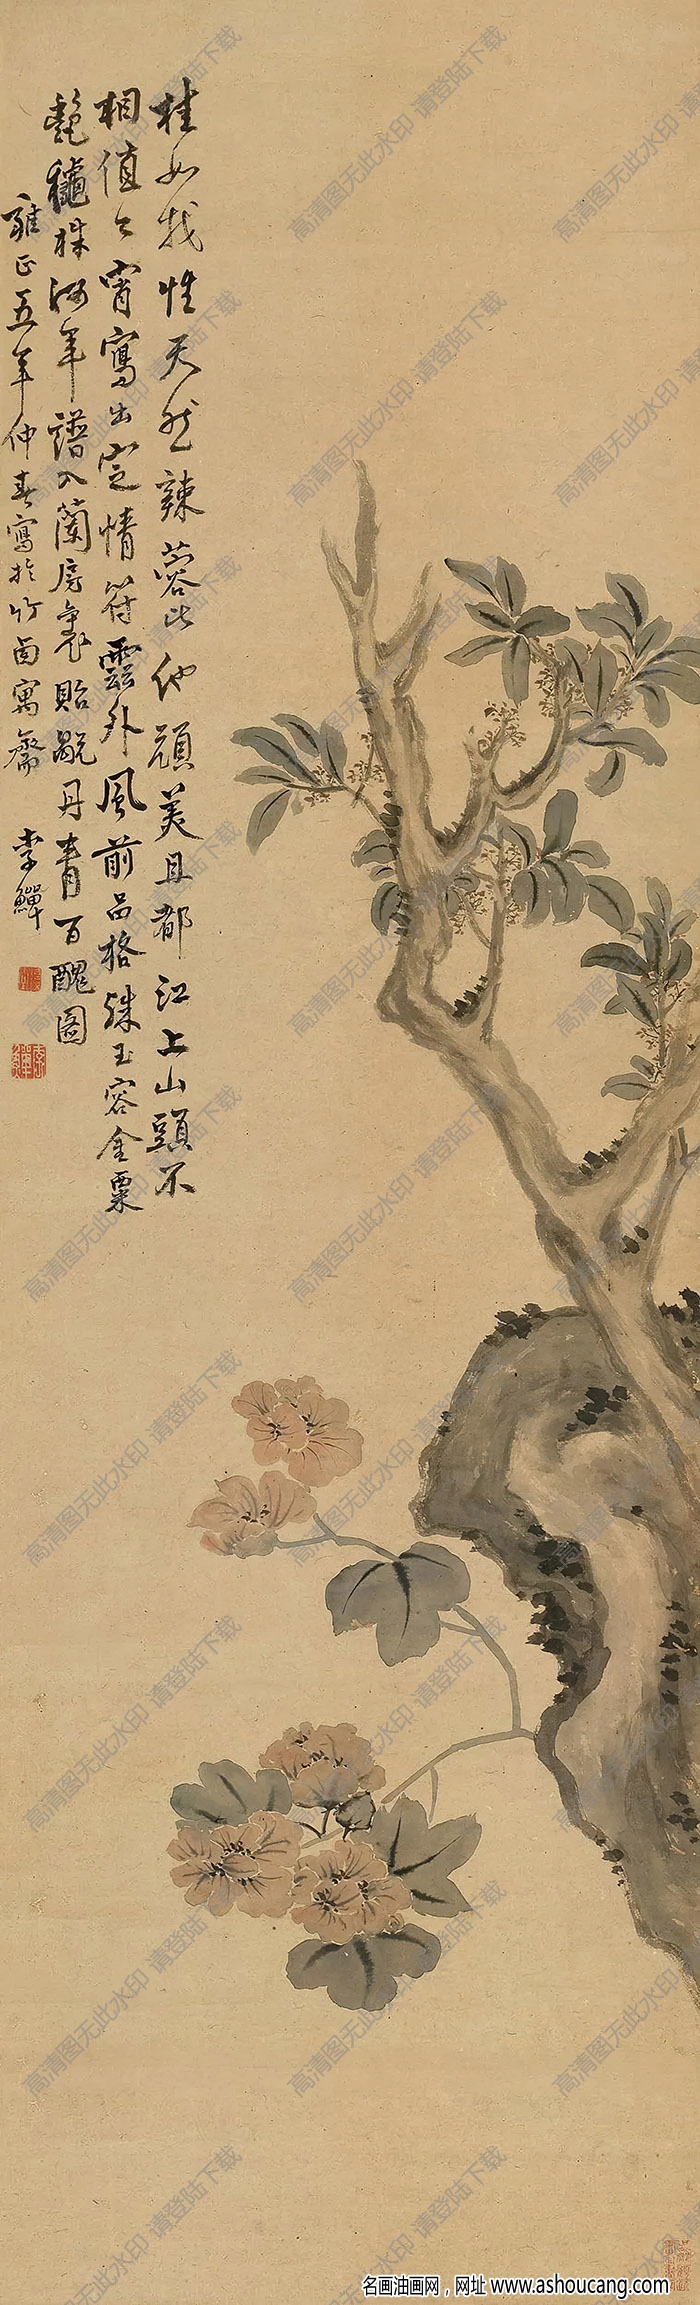 桂如我性天然辣蓉比他顔美且都江上山頭不
相值今宵寫出定情符雲外風前品格殊玉容金粟
艷穠株何年譜入蘭房裏貽

丹青百醜圖
雍正五年仲春寫於竹西寓齋
李鱓
高清图无此水印 请登陆下载
名画油画网，网址 www.ashoucang.com